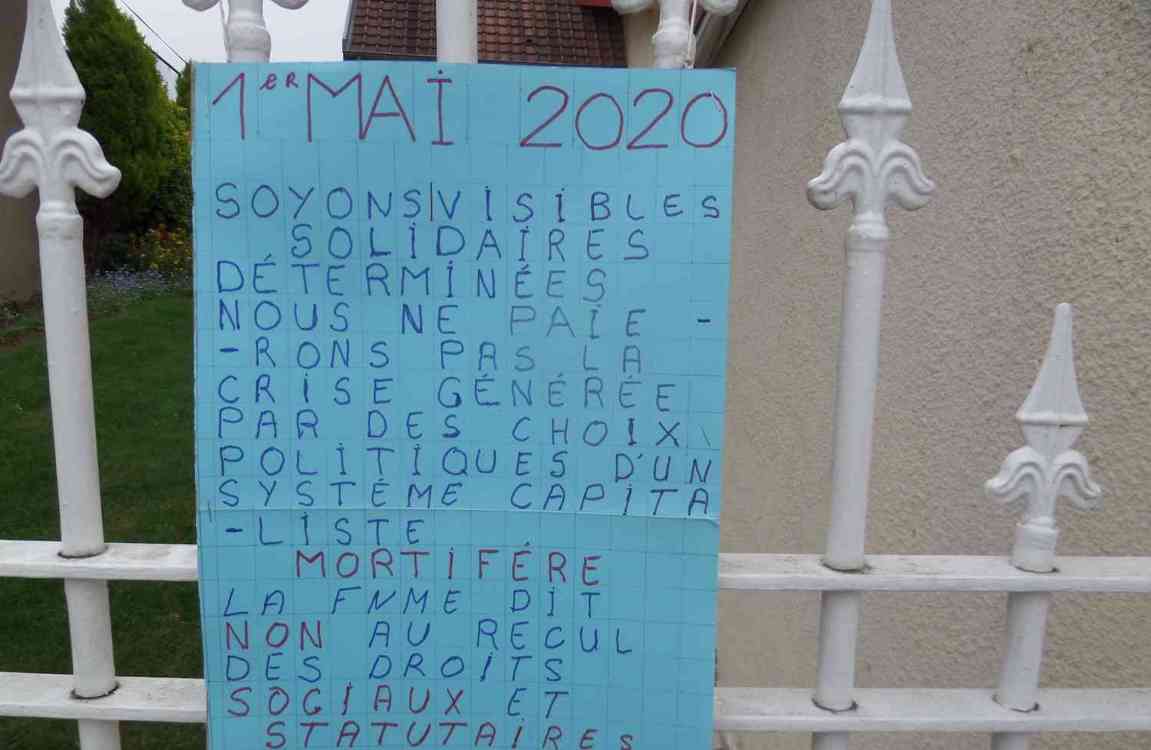 1er MAI 2020
SOYONS VISIBLES
SOLIDAIRES
DÉTERMINÉES
NOUS NE PAIE -
- RONS PAS LA
CRISE GÉNÉRÉE
PAR DES CHOIX
POLITIQUES D'UN
SYSTÉME CAPITA
- LISTE
MORTIFÉRE
LA FNME DIT
NON AU RECUL
DES DROITS
SOCIAUX ET
STATUTAIRES